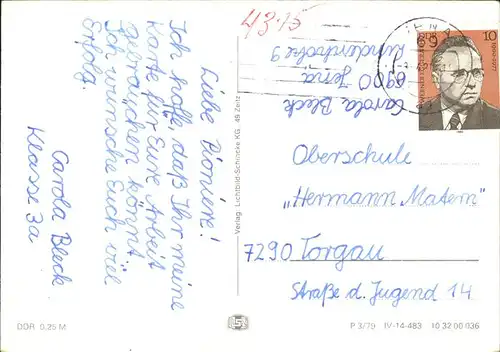 Liebe Pioniere!
Ich hoffe, daß Ihr meine
Karte für Eure Arbeit
gebrauchen könnt.
Ich wünsche Euch viel
Erfolg.
Carola Bleck
Klasse 3a
4315
Carola Bleck
6900 Jena
9
Oberschule
„Hermann Matern"
7290 Torgau
Straße d. Jugend 14
DDR
10
Verlag: Lichtbild-Schincke KG, 49 Zeitz
DDR 0,25 M
P 3/79 IV-14-483 10 32 00 036